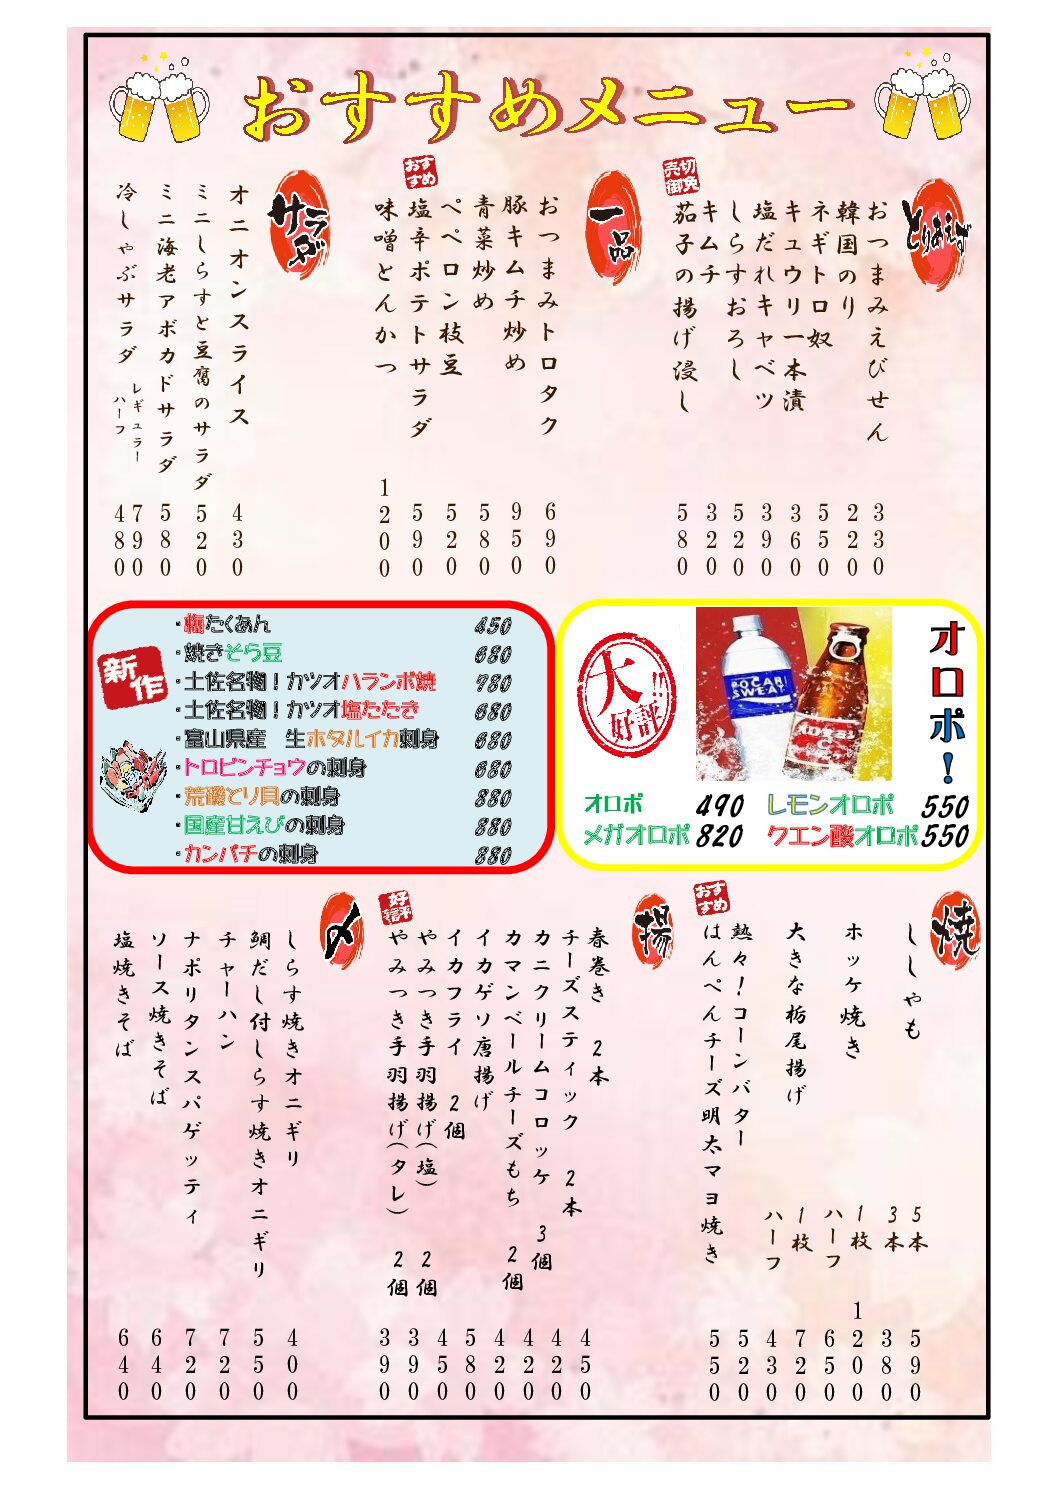 おすすめメニュー
とりあえず
おつまみえびせん 330
韓国のり 220
ネギトロ奴 550
キュウリ一本漬 360
塩だれキャベツ 390
しらすおろし 520
キムチ 320
売切御免
茄子の揚げ浸し 580
一品
おつまみトロタク 690
豚キムチ炒め 950
青菜炒め 580
ペペロン枝豆 520
おすすめ
塩辛ポテトサラダ 590
味噌とんかつ 1200
サラダ
オニオンスライス 430
ミニしらすと豆腐のサラダ 520
ミニ海老アボカドサラダ 580
冷しゃぶサラダ レギュラー 790
ハーフ 480
新作
・梅たくあん 450
・焼きそら豆 680
・土佐名物！カツオハランボ焼 780
・土佐名物！カツオ塩たたき 680
・富山県産 生ホタルイカ刺身 680
・トロビンチョウの刺身 680
・荒磯とり貝の刺身 880
・国産甘えびの刺身 880
・カンパチの刺身 880
大好評!!
POCARI SWEAT
オロポ！
オロポ 490
レモンオロポ 550
メガオロポ 820
クエン酸オロポ 550
焼
ししゃも 5本 590
3本 380
ホッケ焼き 1枚 1200
ハーフ 650
大きな栃尾揚げ 1枚 720
ハーフ 430
熱々！コーンバター 520
おすすめ
はんぺんチーズ明太マヨ焼き 550
揚
春巻き 2本 450
チーズスティック 2本 420
カニクリームコロッケ 3個 420
カマンベールチーズもち 2個 420
イカゲソ唐揚げ 580
イカフライ 2個 450
やみつき手羽揚げ(塩) 2個 390
好評
やみつき手羽揚げ(タレ) 2個 390
〆
しらす焼きオニギリ 400
鯛だし付しらす焼きオニギリ 550
チャーハン 720
ナポリタンスパゲッティ 720
ソース焼きそば 640
塩焼きそば 640